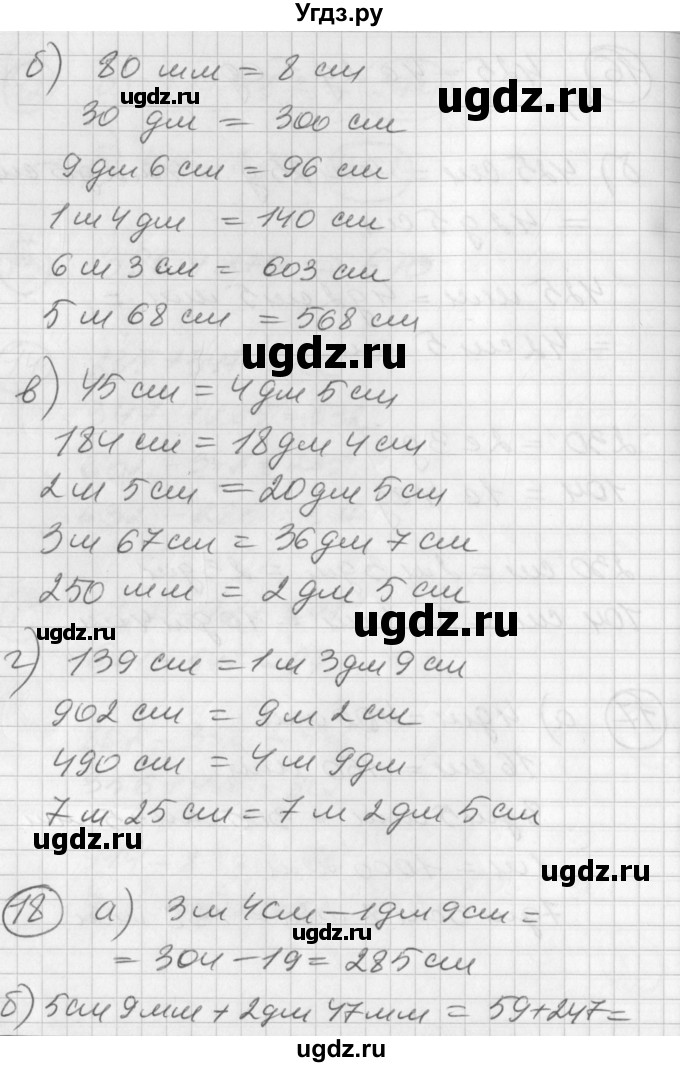 Угдз.ру
б) 80 мм = 8 см
ugdz.ru
ugdz.ru
30 дм = 300 см
9 дм 6 см = 96 см
1 м 4 дм = 140 см
6 м 3 см = 603 см
5 м 68 см = 568 см
ugdz.ru
в) 45 см = 4 дм 5 см
184 см = 18 дм 4 см
2 м 5 см = 20 дм 5 см
3 м 67 см = 36 дм 7 см
250 мм = 2 дм 5 см
ugdz.ru
ugdz.ru
г) 139 см = 1 м 3 дм 9 см
902 см = 9 м 2 см
490 см = 4 м 9 дм
7 м 25 см = 7 м 2 дм 5 см
ugdz.ru
ugdz.ru
18 а) 3 м 4 см - 1 дм 9 см =
ugdz.ru
= 304 - 19 = 285 см
б) 5 см 9 мм + 2 дм 47 мм = 59 + 247 =
ugdz.ru